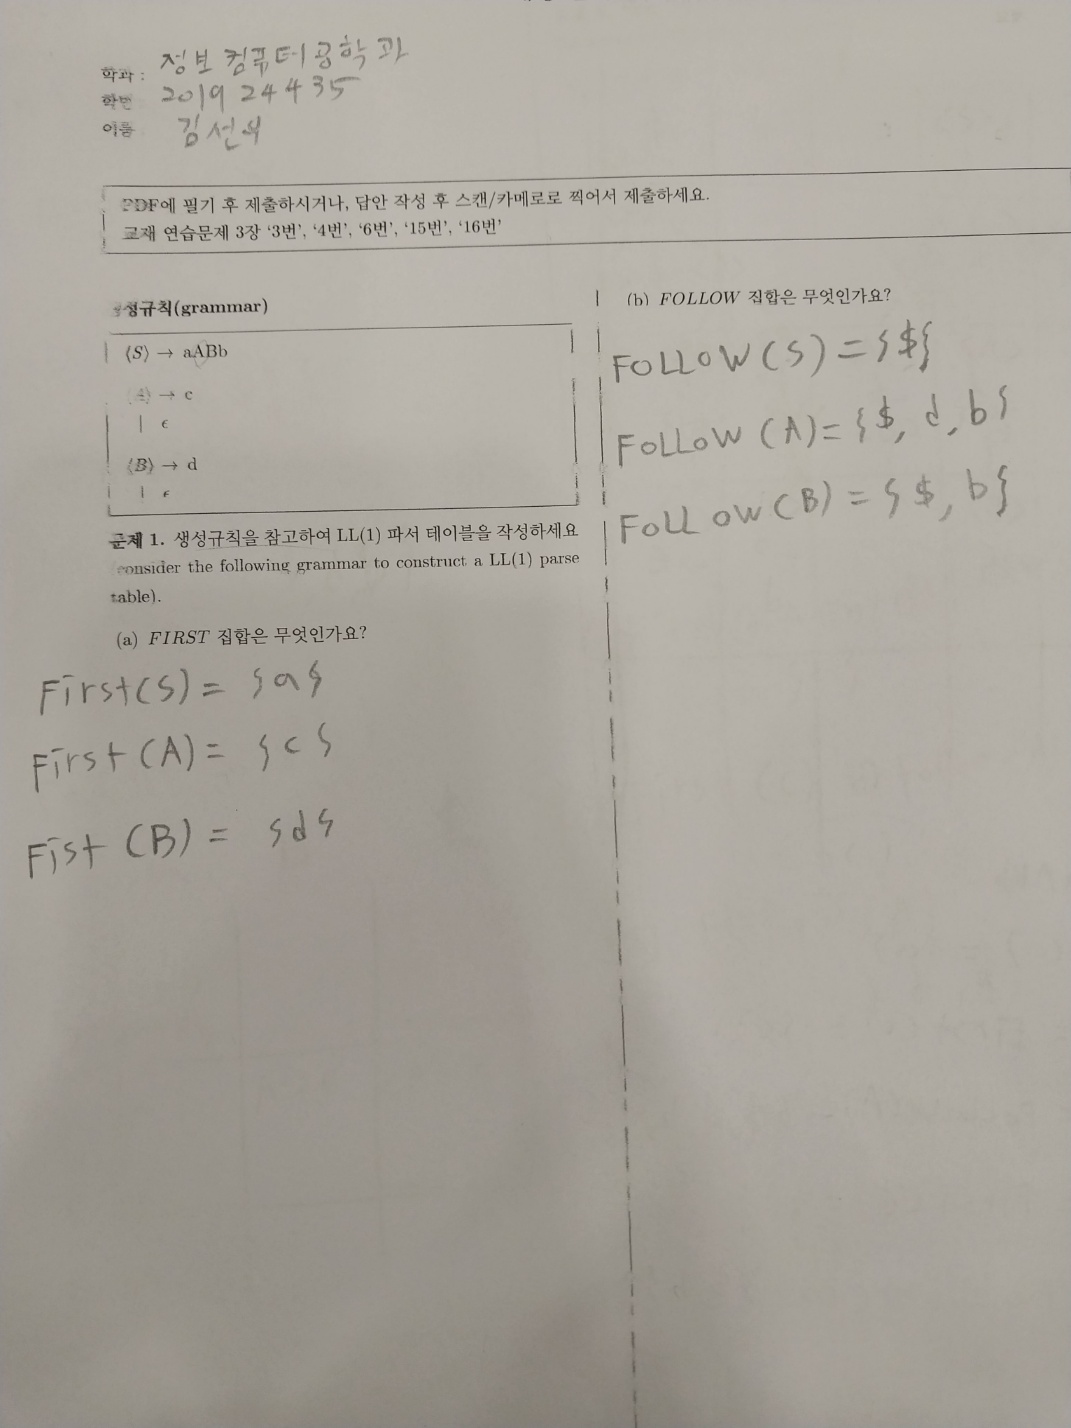 학과 : 정보컴퓨터공학과
학번 201924435
이름 김선우
PDF에 필기 후 제출하시거나, 답안 작성 후 스캔/카메로로 찍어서 제출하세요.
교재 연습문제 3장 ‘3번’, ‘4번’, ‘6번’, ‘15번’, ‘16번’
생성규칙(grammar)
⟨S⟩ → aABb
⟨A⟩ → c
| ϵ
⟨B⟩ → d
| ϵ
문제 1. 생성규칙을 참고하여 LL(1) 파서 테이블을 작성하세요
consider the following grammar to construct a LL(1) parse
table).
(a) FIRST 집합은 무엇인가요?
First(S) = {a}
First(A) = {c}
Fist (B) = {d}
(b) FOLLOW 집합은 무엇인가요?
FOLLOW(S) = {$}
FOLLOW (A)= {$, d, b}
FOLLOW(B) = {$, b}